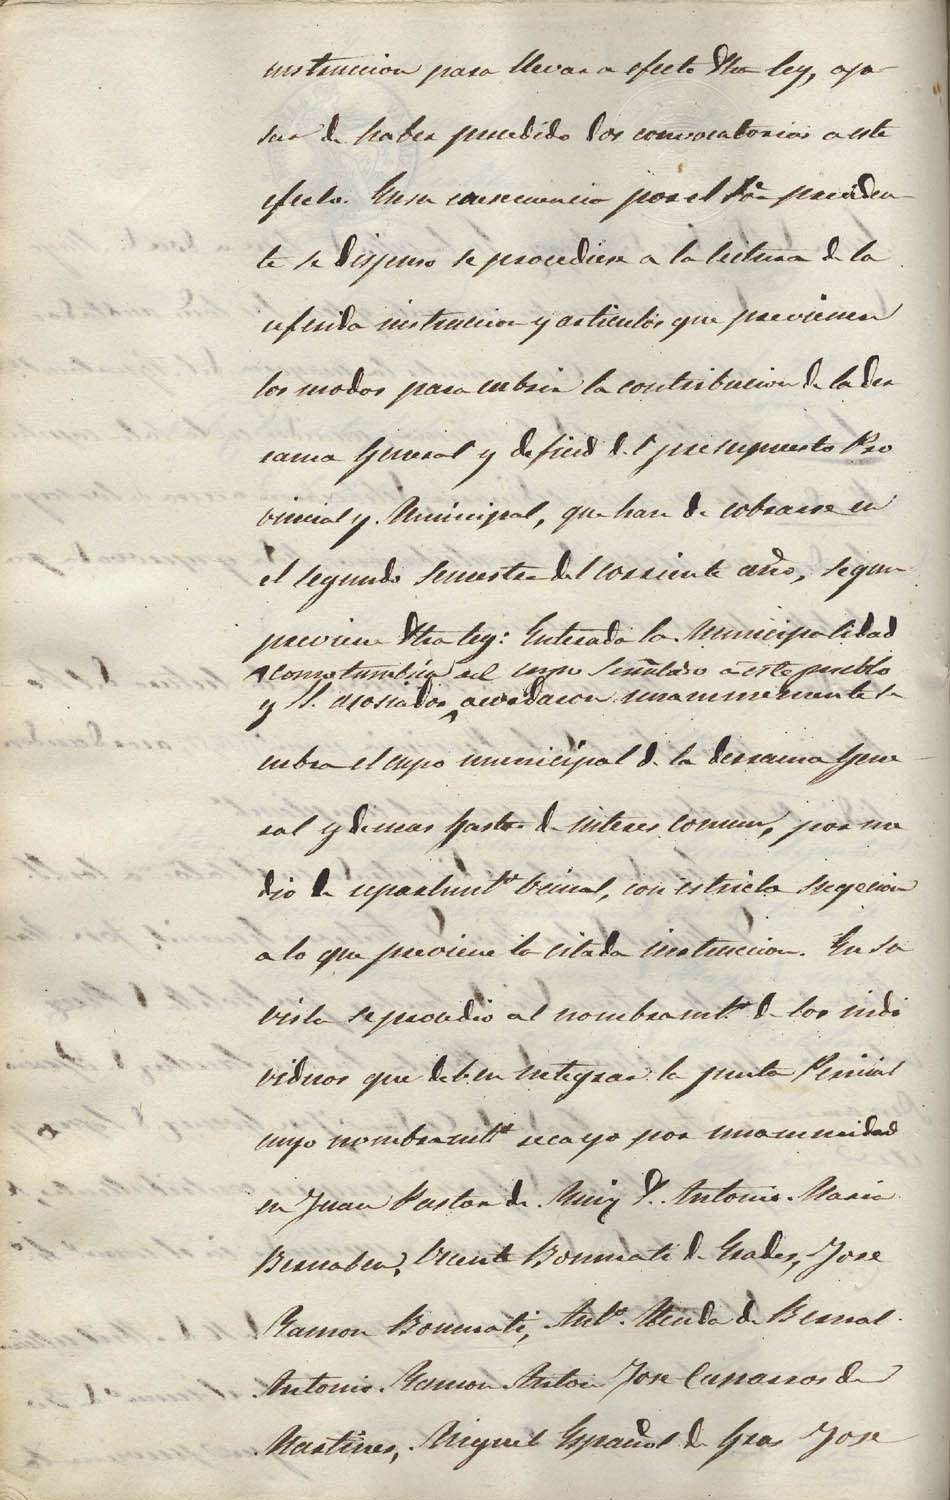 instruccion para llevar a efecto dha ley, ape-
sar de haber precedido dos convocatorias a este
efecto. En su consecuencia por el Sr. presiden-
te se dispuso se procediese a la lectura de la
referida instruccion y articulos que previenen
los modos para cubrir la contribucion de la der
rama General y deficid del presupuesto Pro
vincial y Municipal, que han de cobrarse en
el segundo semestre del corriente año, segun
previene dha ley: Enterada la Municipalidad
como tambien del cupo señalado a este pueblo
y S. asociados, acordaron unanimemente se
cubra el cupo municipal de la derrama Gene-
ral y demas gastos de interes comun, por me
dio de repartimto vecinal, con estricta sugecion
a lo que previene la citada instruccion. En su
vista se procedio al nombramto de los indi
viduos que deben integrar la junta Pericial
cuyo nombramto recayo por unanimidad
en Juan Pastor de Miq D. Antonio Maria
Bernabeu, Vicente Bonmati de Grades, Jose
Ramon Bonmati, Anto. Alenda de Bernal
Antonio Ramon Anton Jose Canarros de
Martines, Miguel Español de Gras Jose